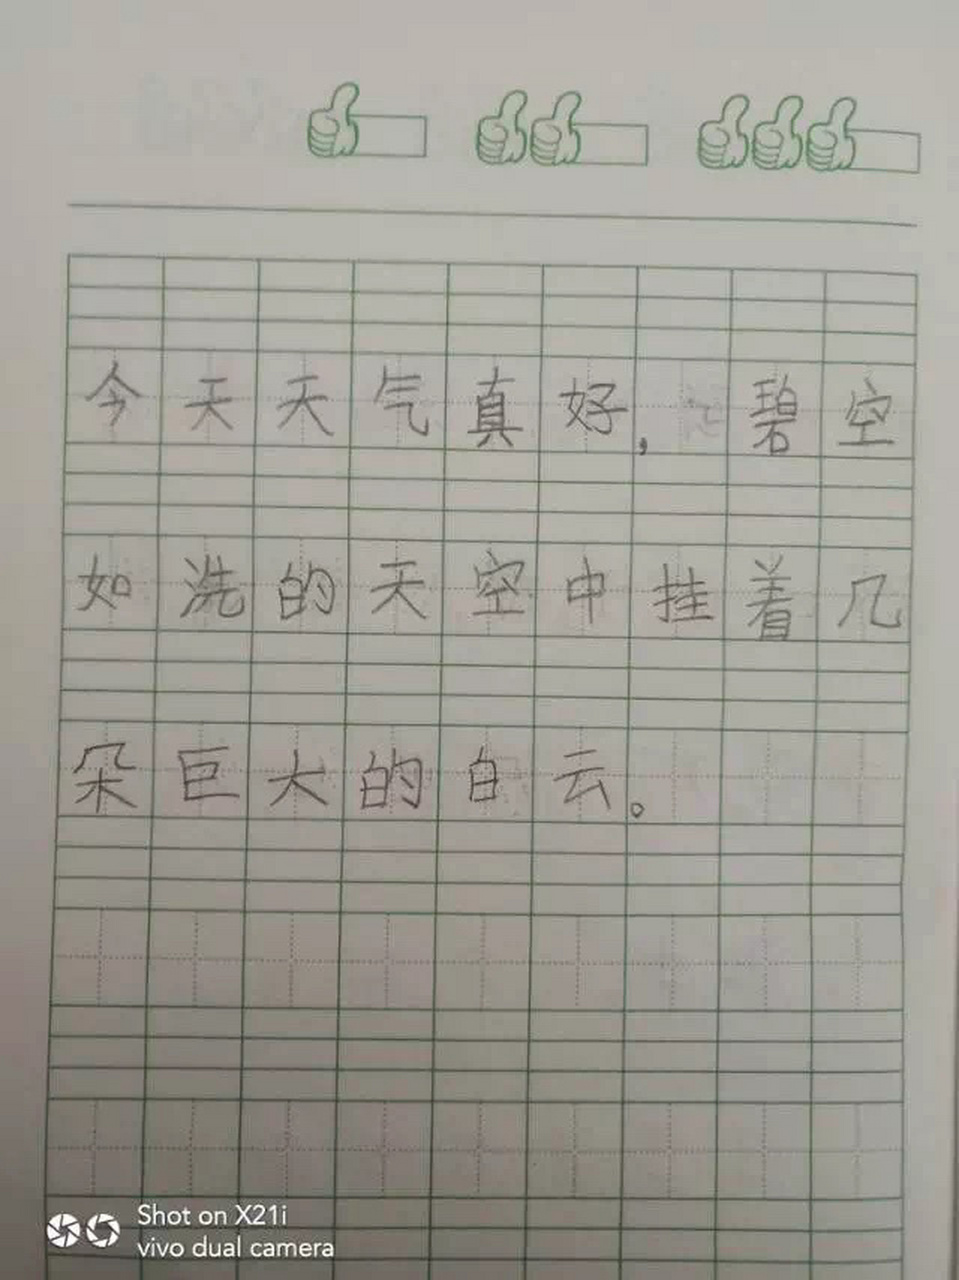 今天天气真好，碧空
如洗的天空中挂着几
朵巨大的白云。
Shot on X21i
vivo dual camera